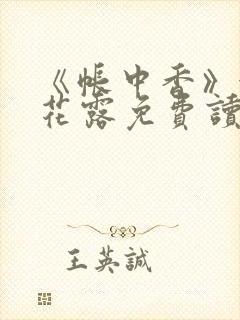 《帳中香》
花露免費讀
王英誠